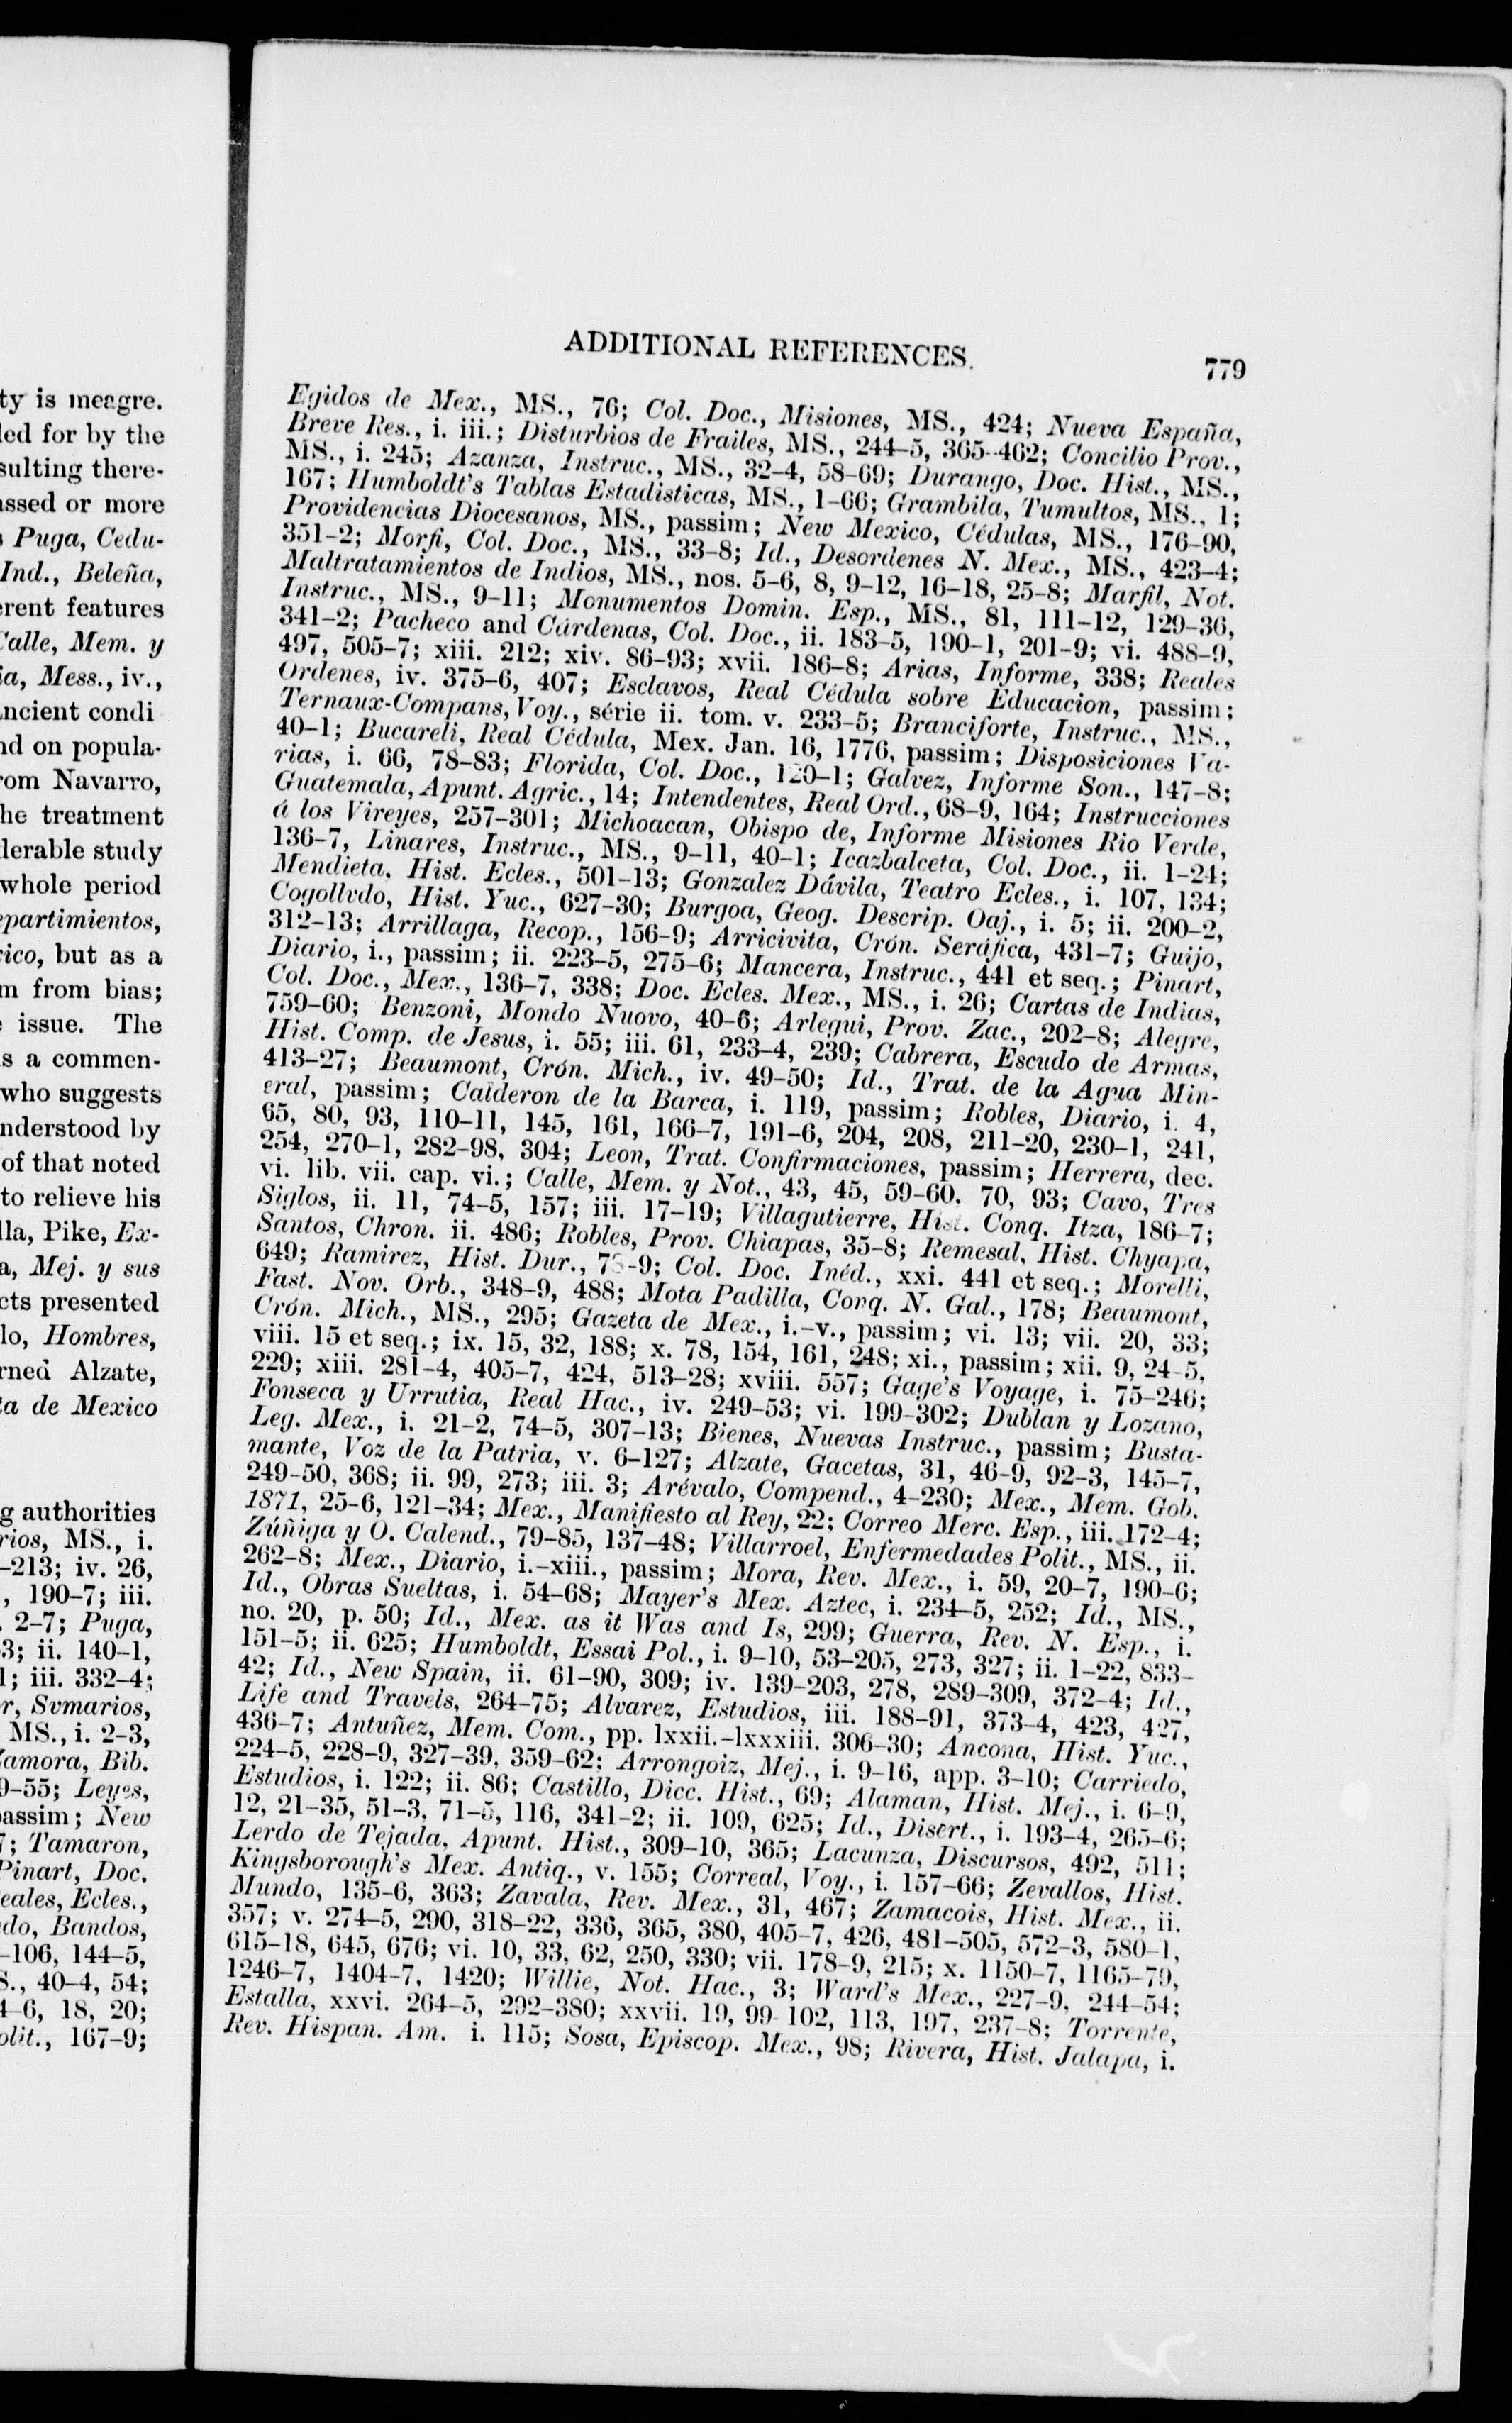 ty is meagre.
led for by the
sulting there-
assed or more
Puga, Cedu-
Ind., Beleña,
erent features
Calle, Mem. y
ia, Mess., iv.,
ancient condi
nd on popula-
rom Navarro,
he treatment
derable study
whole period
epartimientos,
ico, but as a
m from bias;
e issue. The
is a commen-
who suggests
nderstood by
of that noted
to relieve his
lla, Pike, Ex-
a, Mej. y sus
cts presented
lo, Hombres,
rned Alzate,
ta de Mexico
g authorities
rios, MS., i.
-213; iv. 26,
, 190-7; iii.
. 2-7; Puga,
3; ii. 140-1,
1; iii. 332-4;
r, Svmarios,
MS., i. 2-3,
Zamora, Bib.
9-55; Leyes,
passim; New
7; Tamaron,
Pinart, Doc.
Reales, Ecles.,
do, Bandos,
-106, 144-5,
S., 40-4, 54;
4-6, 18, 20;
olit., 167-9;
ADDITIONAL REFERENCES.
779
Egidos de Mex., MS., 76; Col. Doc., Misiones, MS., 424; Nueva España,
Breve Res., i. iii.; Disturbios de Frailes, MS., 244-5, 365-462; Concilio Prov.,
MS., i. 245; Azanza, Instruc., MS., 32-4, 58-69; Durango, Doc. Hist., MS.,
167; Humboldt's Tablas Estadisticas, MS., 1-66; Grambila, Tumultos, MS., 1;
Providencias Diocesanos, MS., passim; New Mexico, Cédulas, MS., 176-90,
351-2; Morfi, Col. Doc., MS., 33-8; Id., Desordenes N. Mex., MS., 423-4;
Maltratamientos de Indios, MS., nos. 5-6, 8, 9-12, 16-18, 25-8; Marfil, Not.
Instruc., MS., 9-11; Monumentos Domin. Esp., MS., 81, 111-12, 129-36,
341-2; Pacheco and Cárdenas, Col. Doc., ii. 183-5, 190-1, 201-9; vi. 488-9,
497, 505-7; xiii. 212; xiv. 86-93; xvii. 186-8; Arias, Informe, 338; Reales
Ordenes, iv. 375-6, 407; Esclavos, Real Cédula sobre Educacion, passim;
Ternaux-Compans, Voy., série ii. tom. v. 233-5; Branciforte, Instruc., MS.,
40-1; Bucareli, Real Cédula, Mex. Jan. 16, 1776, passim; Disposiciones Va-
rias, i. 66, 78-83; Florida, Col. Doc., 120-1; Galvez, Informe Son., 147-8;
Guatemala, Apunt. Agric., 14; Intendentes, Real Ord., 68-9, 164; Instrucciones
á los Vireyes, 257-301; Michoacan, Obispo de, Informe Misiones Rio Verde,
136-7, Linares, Instruc., MS., 9-11, 40-1; Icazbalceta, Col. Doc., ii. 1-24;
Mendieta, Hist. Ecles., 501-13; Gonzalez Dávila, Teatro Ecles., i. 107, 134;
Cogollvdo, Hist. Yuc., 627-30; Burgoa, Geog. Descrip. Oaj., i. 5; ii. 200-2,
312-13; Arrillaga, Recop., 156-9; Arricivita, Crón. Seráfica, 431-7; Guijo,
Diario, i., passim; ii. 223-5, 275-6; Mancera, Instruc., 441 et seq.; Pinart,
Col. Doc., Mex., 136-7, 338; Doc. Ecles. Mex., MS., i. 26; Cartas de Indias,
759-60; Benzoni, Mondo Nuovo, 40-6; Arlegui, Prov. Zac., 202-8; Alegre,
Hist. Comp. de Jesus, i. 55; iii. 61, 233-4, 239; Cabrera, Escudo de Armas,
413-27; Beaumont, Crón. Mich., iv. 49-50; Id., Trat. de la Agua Min-
eral, passim; Calderon de la Barca, i. 119, passim; Robles, Diario, i. 4,
65, 80, 93, 110-11, 145, 161, 166-7, 191-6, 204, 208, 211-20, 230-1, 241,
254, 270-1, 282-98, 304; Leon, Trat. Confirmaciones, passim; Herrera, dec.
vi. lib. vii. cap. vi.; Calle, Mem. y Not., 43, 45, 59-60, 70, 93; Cavo, Tres
Siglos, ii. 11, 74-5, 157; iii. 17-19; Villagutierre, Hist. Conq. Itza, 186-7;
Santos, Chron. ii. 486; Robles, Prov. Chiapas, 35-8; Remesal, Hist. Chyapa,
649; Ramirez, Hist. Dur., -9; Col. Doc. Inéd., xxi. 441 et seq.; Morelli,
Fast. Nov. Orb., 348-9, 488; Mota Padilla, Conq. N. Gal., 178; Beaumont,
Crón. Mich., MS., 295; Gazeta de Mex., i.-v., passim; vi. 13; vii. 20, 33;
viii. 15 et seq.; ix. 15, 32, 188; x. 78, 154, 161, 248; xi., passim; xii. 9, 24-5,
229; xiii. 281-4, 405-7, 424, 513-28; xviii. 557; Gage's Voyage, i. 75-246;
Fonseca y Urrutia, Real Hac., iv. 249-53; vi. 199-302; Dublan y Lozano,
Leg. Mex., i. 21-2, 74-5, 307-13; Bienes, Nuevas Instruc., passim; Busta-
mante, Voz de la Patria, v. 6-127; Alzate, Gacetas, 31, 46-9, 92-3, 145-7,
249-50, 368; ii. 99, 273; iii. 3; Arévalo, Compend., 4-230; Mex., Mem. Gob.
1871, 25-6, 121-34; Mex., Manifiesto al Rey, 22; Correo Merc. Esp., iii. 172-4;
Zúñiga y O. Calend., 79-85, 137-48; Villarroel, Enfermedades Polit., MS., ii.
262-8; Mex., Diario, i.-xiii., passim; Mora, Rev. Mex., i. 59, 20-7, 190-6;
Id., Obras Sueltas, i. 54-68; Mayer's Mex. Aztec, i. 234-5, 252; Id., MS.,
no. 20, p. 50; Id., Mex. as it Was and Is, 299; Guerra, Rev. N. Esp., i.
151-5; ii. 625; Humboldt, Essai Pol., i. 9-10, 53-205, 273, 327; ii. 1-22, 833-
42; Id., New Spain, ii. 61-90, 309; iv. 139-203, 278, 289-309, 372-4; Id.,
Life and Travels, 264-75; Alvarez, Estudios, iii. 188-91, 373-4, 423, 427,
436-7; Antuñez, Mem. Com., pp. lxxii.-lxxxiii. 306-30; Ancona, Hist. Yuc.,
224-5, 228-9, 327-39, 359-62; Arrongoiz, Mej., i. 9-16, app. 3-10; Carriedo,
Estudios, i. 122; ii. 86; Castillo, Dicc. Hist., 69; Alaman, Hist. Mej., i. 6-9,
12, 21-35, 51-3, 71-5, 116, 341-2; ii. 109, 625; Id., Disert., i. 193-4, 265-6;
Lerdo de Tejada, Apunt. Hist., 309-10, 365; Lacunza, Discursos, 492, 511;
Kingsborough's Mex. Antiq., v. 155; Correal, Voy., i. 157-66; Zevallos, Hist.
Mundo, 135-6, 363; Zavala, Rev. Mex., 31, 467; Zamacois, Hist. Mex., ii.
357; v. 274-5, 290, 318-22, 336, 365, 380, 405-7, 426, 481-505, 572-3, 580-1,
615-18, 645, 676; vi. 10, 33, 62, 250, 330; vii. 178-9, 215; x. 1150-7, 1165-79,
1246-7, 1404-7, 1420; Willie, Not. Hac., 3; Ward's Mex., 227-9, 244-54;
Estalla, xxvi. 264-5, 292-380; xxvii. 19, 99-102, 113, 197, 237-8; Torrente,
Rev. Hispan. Am. i. 115; Sosa, Episcop. Mex., 98; Rivera, Hist. Jalapa, i.